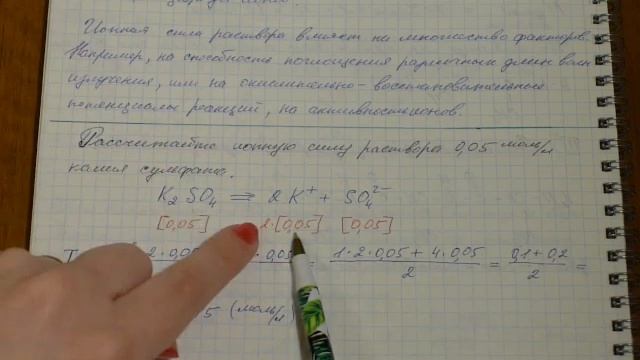 Ионная сила раствора влияет на множество факторов.
Например, на способность поглощения различных длин волн
излучения, или на окислительно-восстановительные
потенциалы реакций, на активность ионов.
Рассчитайте ионную силу раствора 0,05 моль/л
калия сульфата.
K₂SO₄ ⇌ 2K⁺ + SO₄²⁻
[0,05] 2·[0,05] [0,05]
2·0,05 0,05 = (1·2·0,05 + 4·0,05)/2 = (0,1 + 0,2)/2 =
5 (моль/л)